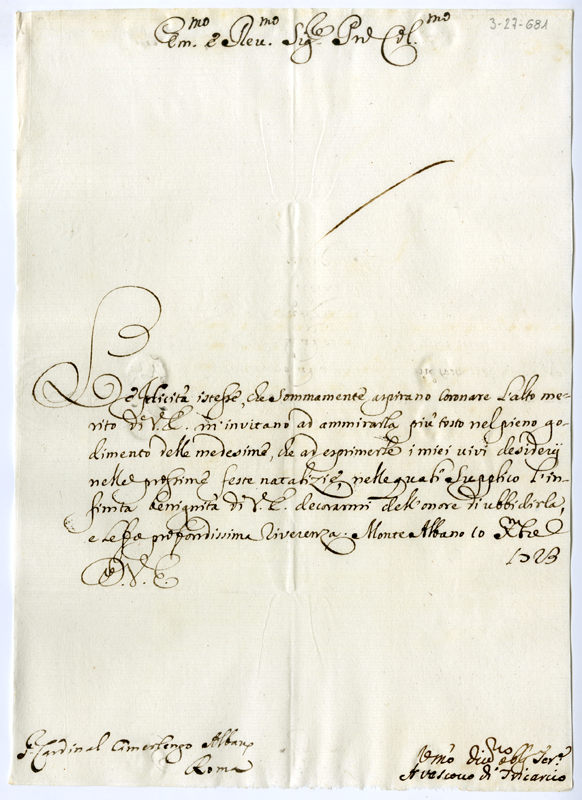 3-27-681
Em.mo e Rev.mo Sig.re Prd Col.mo
Le felicità istesse, che sommamente aspirano coronare l'alto me-
rito di V. E. m'invitano ad ammirarla più tosto nel pieno go-
dimento delle medesime, che ad esprimerle i miei vivi desiderij
nelle prossime feste natalizie, nelle quali supplico l'in-
finita benignità di V. E. decorarmi dell'onore di ubbidirla,
e le fo profondissima riverenza. Monte Albano 10 Xbre
1723
D. V. E.
Sr Cardinal Camerlengo Albani
Roma
Umo divmo obl Ser.
Il Vescovo di Tricarico